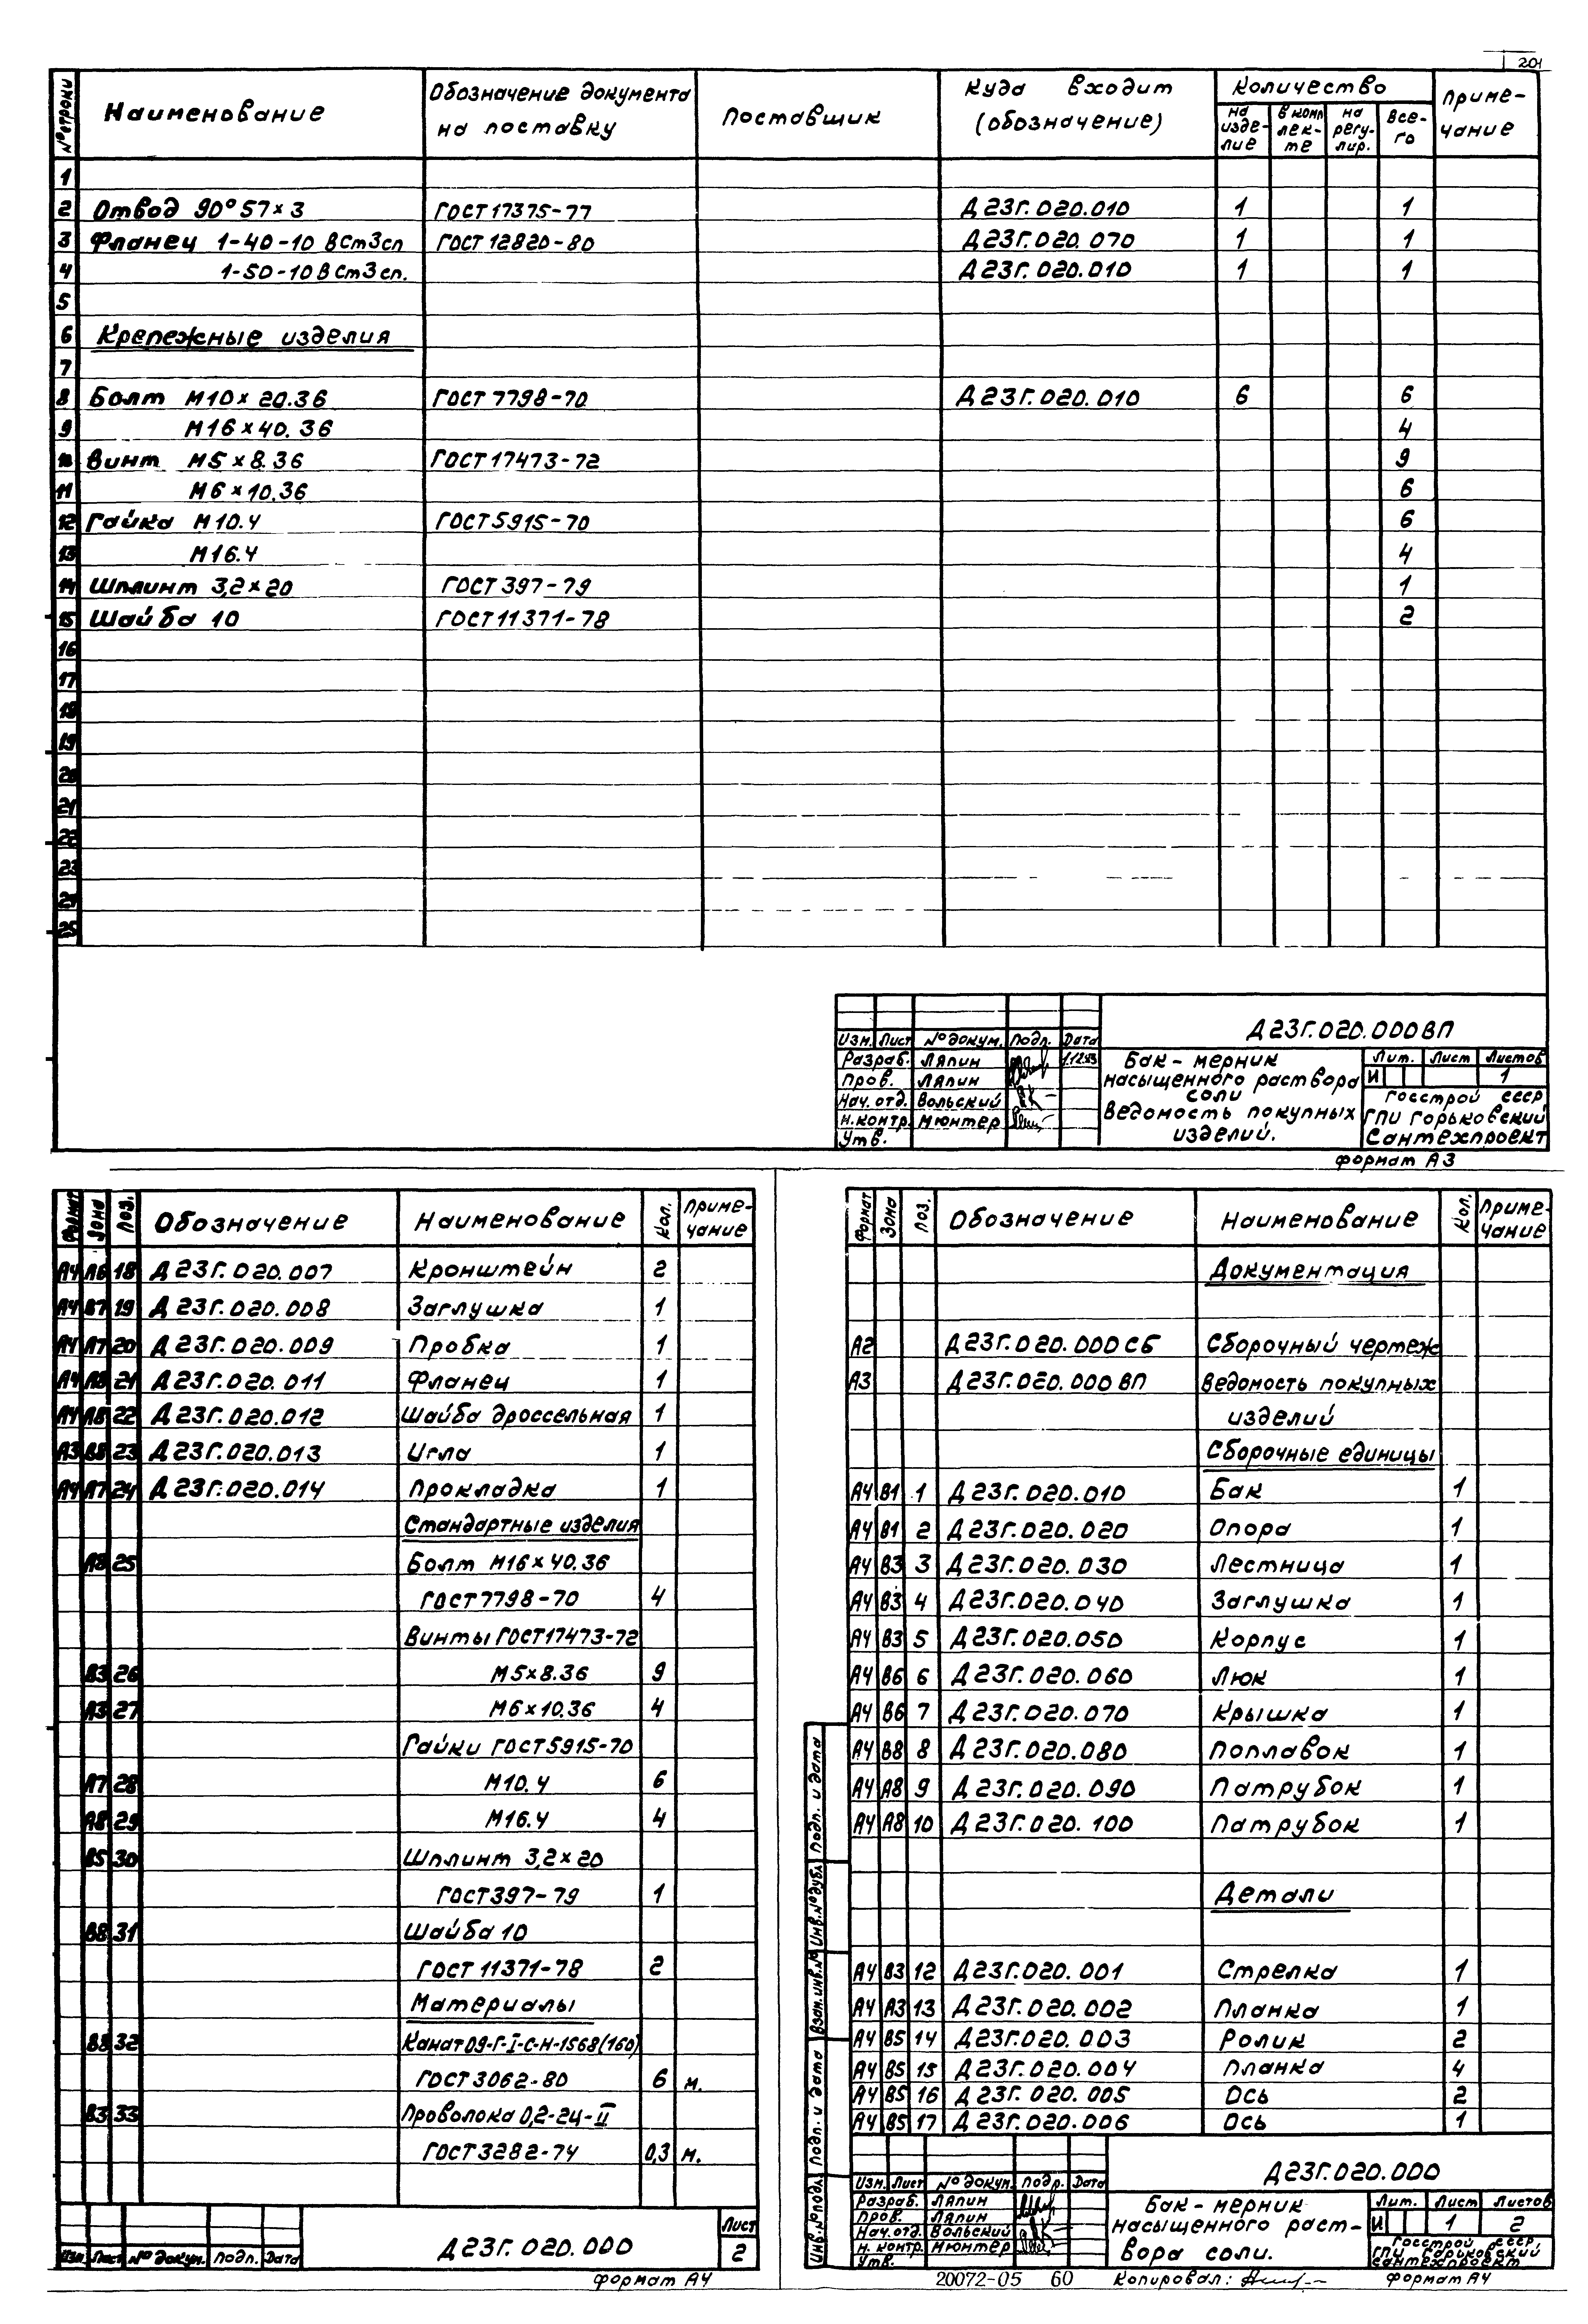 201
№ строки Наименование Обозначение документа на поставку Поставщик Куда входит (обозначение) Количество Приме-чание
на изде-лие в комплек-те на регу-лир. все-го
1
2 Отвод 90° 57×3 ГОСТ 17375-77 Д23Г.020.010 1 1
3 Фланец 1-40-10 ВСт3сп ГОСТ 12820-80 Д23Г.020.070 1 1
4 1-50-10 ВСт3сп. Д23Г.020.010 1 1
5
6 Крепежные изделия
7
8 Болт М10×20.36 ГОСТ 7798-70 Д23Г.020.010 6 6
9 М16×40.36 4
10 Винт М5×8.36 ГОСТ 17473-72 9
11 М6×10.36 6
12 Гайка М10.4 ГОСТ 5915-70 6
13 М16.4 4
14 Шплинт 3,2×20 ГОСТ 397-79 1
15 Шайба 10 ГОСТ 11371-78 2
16
17
18
19
20
21
22
23
24
25
Д23Г.020.000ВП
Изм. Лист № докум. Подп. Дата
Разраб. Ляпин
Пров. Ляпин
Нач. отд. Вольский
Н.контр. Мюнтер
Утв.
Бак-мерник
насыщенного раствора
соли
Ведомость покупных
изделий.
Лит. Лист Листов
И 1
Госстрой СССР
ГПИ Горьковский
Сантехпроект
Формат А3
Формат Зона Поз. Обозначение Наименование Кол. Приме-чание
А4 А6 18 Д23Г.020.007 Кронштейн 2
А4 В7 19 Д23Г.020.008 Заглушка 1
А4 А7 20 Д23Г.020.009 Пробка 1
А4 А8 21 Д23Г.020.011 Фланец 1
А4 А8 22 Д23Г.020.012 Шайба дроссельная 1
А3 В8 23 Д23Г.020.013 Игла 1
А4 А7 24 Д23Г.020.014 Прокладка 1
Стандартные изделия
А8 25 Болт М16×40.36
ГОСТ 7798-70 4
Винты ГОСТ 17473-72
В3 26 М5×8.36 9
А3 27 М6×10.36 4
Гайки ГОСТ 5915-70
А7 28 М10.4 6
А8 29 М16.4 4
В5 30 Шплинт 3,2×20
ГОСТ 397-79 1
В8 31 Шайба 10
ГОСТ 11371-78 2
Материалы
В8 32 Канат 0,9-Г-I-С-Н-1568(160)
ГОСТ 3062-80 6 м.
В3 33 Проволока 0,2-2Ц-II
ГОСТ 3282-74 0,3 м.
Изм. Лист № докум. Подп. Дата
Д23Г.020.000
Лист
2
Формат А4
Формат Зона Поз. Обозначение Наименование Кол. Приме-чание
Документация
А2 Д23Г.020.000СБ Сборочный чертеж
А3 Д23Г.020.000ВП Ведомость покупных
изделий
Сборочные единицы
А4 В1 1 Д23Г.020.010 Бак 1
А4 В1 2 Д23Г.020.020 Опора 1
А4 В3 3 Д23Г.020.030 Лестница 1
А4 В3 4 Д23Г.020.040 Заглушка 1
А4 В3 5 Д23Г.020.050 Корпус 1
А4 В6 6 Д23Г.020.060 Люк 1
А4 В6 7 Д23Г.020.070 Крышка 1
А4 В8 8 Д23Г.020.080 Поплавок 1
А4 А8 9 Д23Г.020.090 Патрубок 1
А4 А8 10 Д23Г.020.100 Патрубок 1
Детали
А4 В3 12 Д23Г.020.001 Стрелка 1
А4 А3 13 Д23Г.020.002 Планка 1
А4 В5 14 Д23Г.020.003 Ролик 2
А4 В5 15 Д23Г.020.004 Планка 4
А4 В5 16 Д23Г.020.005 Ось 2
А4 В5 17 Д23Г.020.006 Ось 1
Инв.№подл. Подп. и дата Взам.инв.№ Инв.№дубл. Подп. и дата
Д23Г.020.000
Изм. Лист № докум. Подр. Дата
Разраб. Ляпин
Пров. Ляпин
Нач.отд. Вольский
Н. контр. Мюнтер
Утв.
Бак-мерник
насыщенного раст-
вора соли.
Лит. Лист Листов
И 1 2
Госстрой СССР
ГПИ Горьковский
Сантехпроект
20072-05 60 Копировал: Формат А4